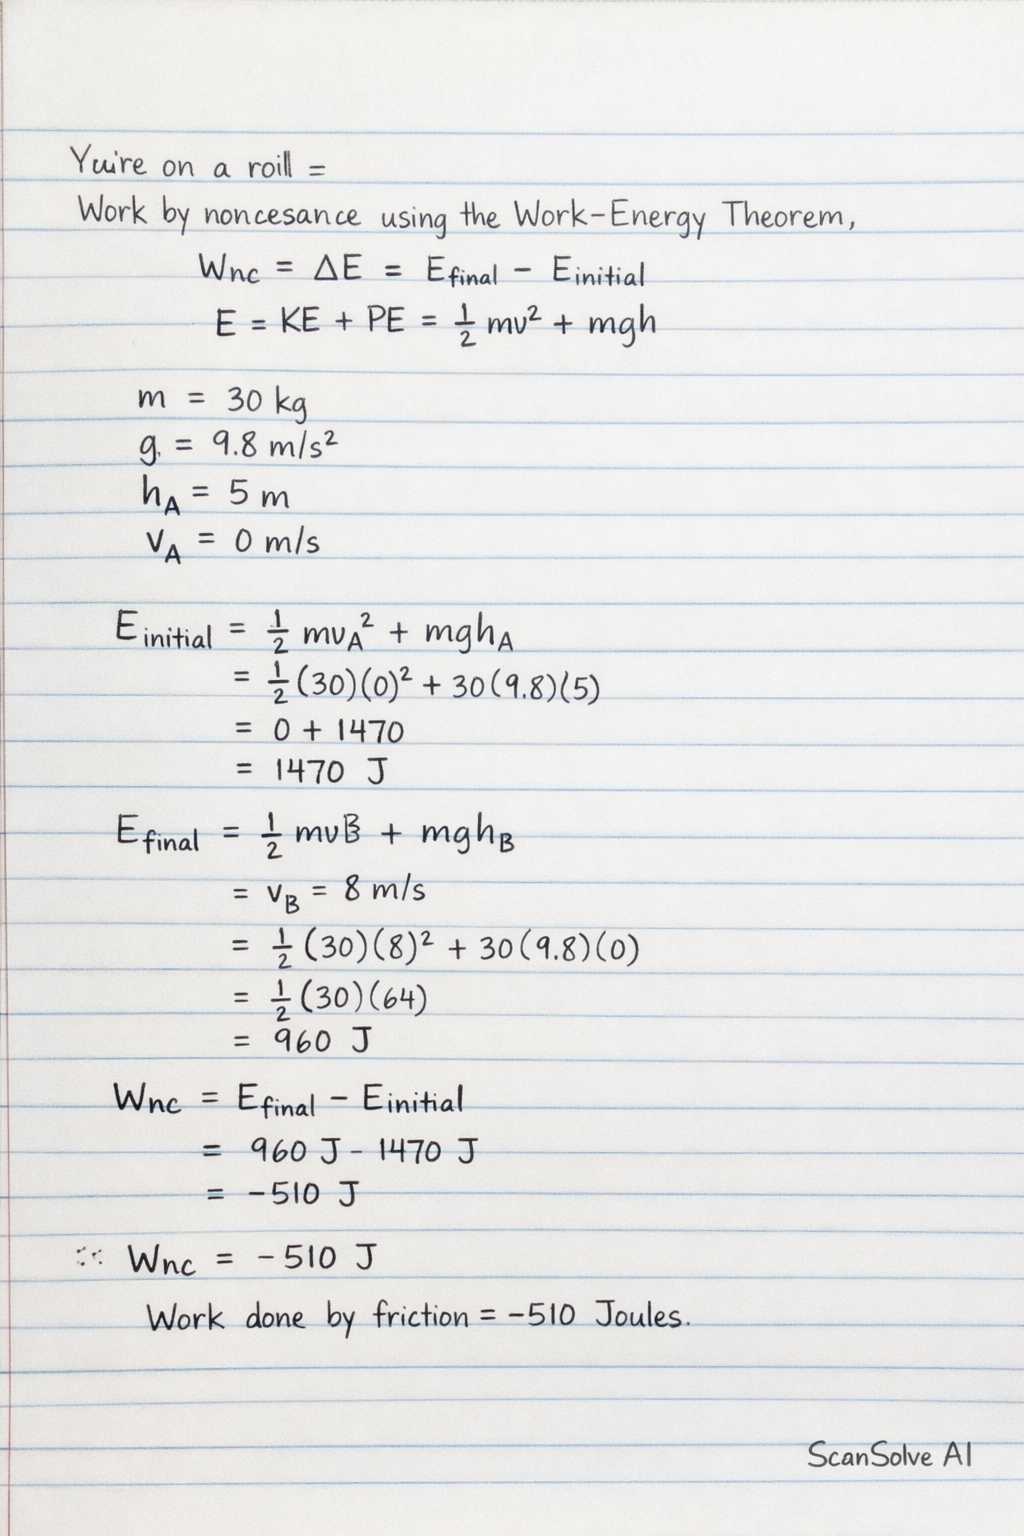 Yuire on a roill =
Work by noncesance using the Work-Energy Theorem,
Wnc = ΔE = Efinal − Einitial
E = KE + PE = 1/2 mv² + mgh
m = 30 kg
g. = 9.8 m/s²
hA = 5 m
vA = 0 m/s
Einitial = 1/2 mvA² + mghA
= 1/2 (30)(0)² + 30(9.8)(5)
= 0 + 1470
= 1470 J
Efinal = 1/2 mvB + mghB
= vB = 8 m/s
= 1/2 (30)(8)² + 30(9.8)(0)
= 1/2 (30)(64)
= 960 J
Wnc = Efinal − Einitial
= 960 J - 1470 J
= -510 J
Wnc = -510 J
Work done by friction = -510 Joules.
ScanSolve AI